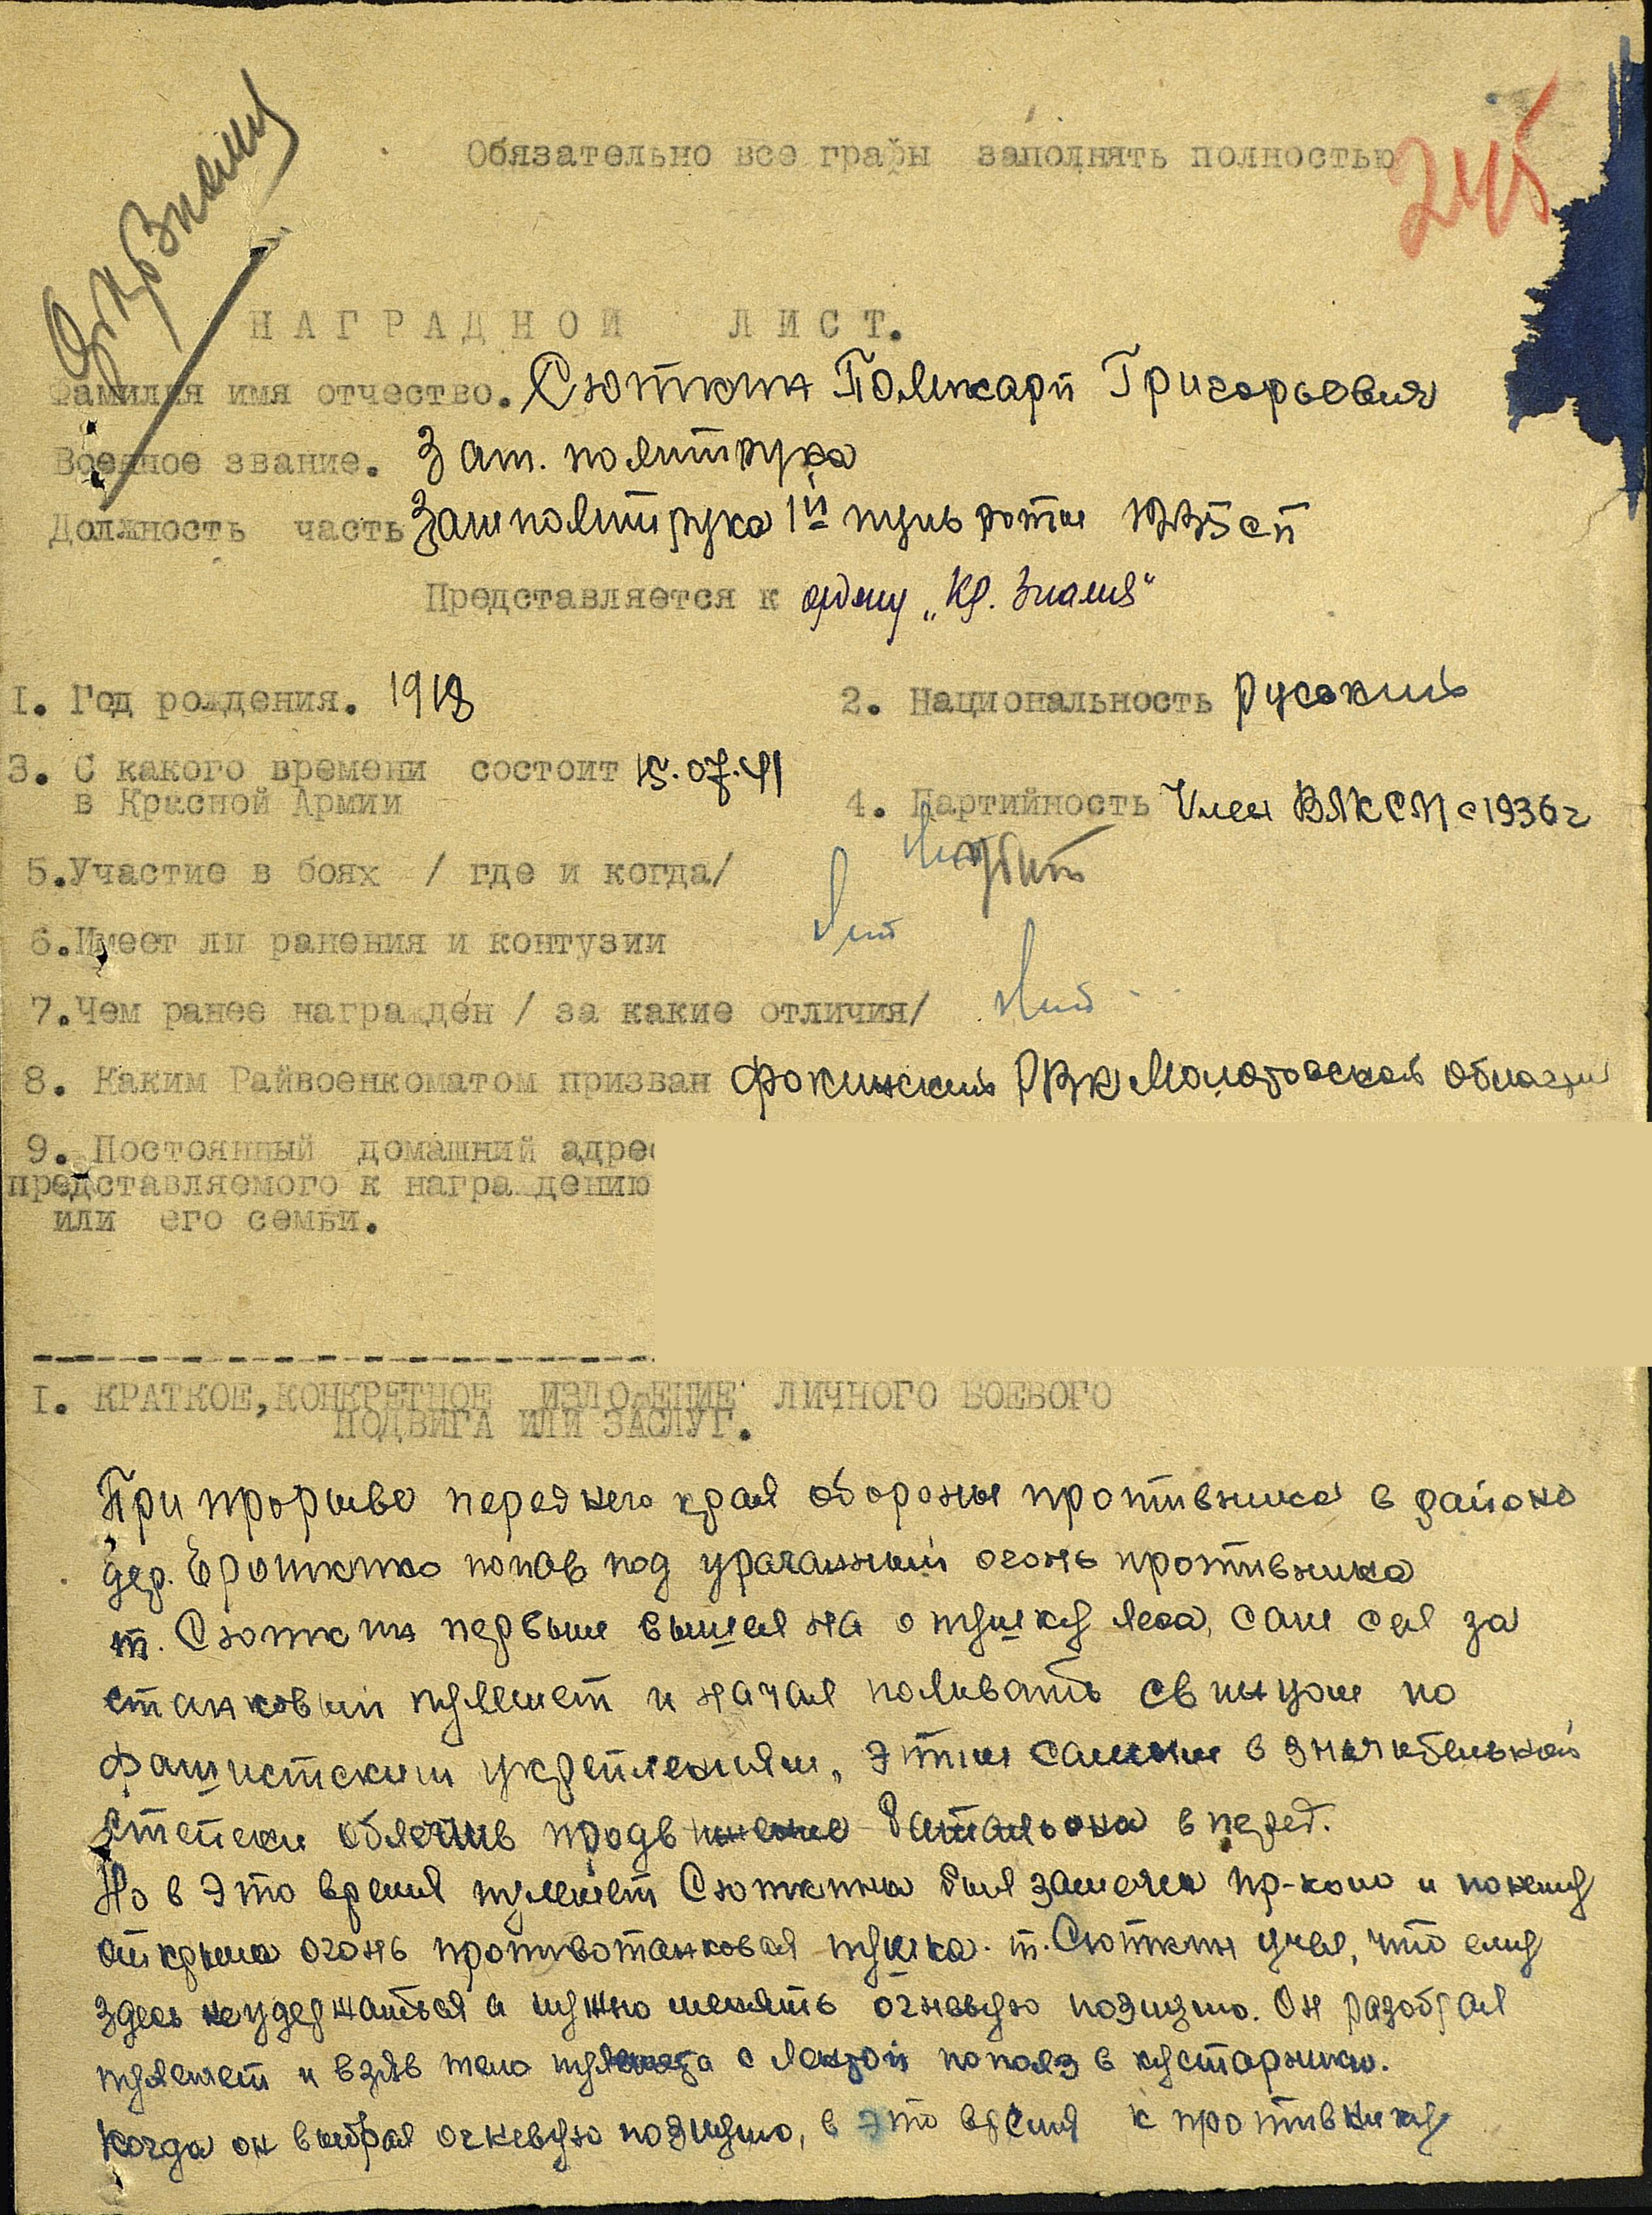 Обязательно все графы заполнять полностью
245
Ор Кр Знамя
НАГРАДНОЙ ЛИСТ.
Фамилия имя отчество. Сюткин Поликарп Григорьевич
Военное звание. Зам. политрука
Должность часть Зам политрука 1й пуль роты сп
Представляется к ордену „Кр. Знамя"
I. Год рождения. 1918
2. Национальность Русский
3. С какого времени состоит 15.07.41
в Красной Армии
4. Партийность Член ВЛКСМ с 1936г
5.Участие в боях / где и когда/ убит
6.Имеет ли ранения и контузии Нет
7.Чем ранее награжден / за какие отличия/ Нет
8. Каким Райвоенкоматом призван Фокинский РВК Молотовской области
9. Постоянный домашний адрес
представляемого к награждению
или его семьи.
I. КРАТКОЕ,КОНКРЕТНОЕ ИЗЛОЖЕНИЕ ЛИЧНОГО БОЕВОГО
ПОДВИГА ИЛИ ЗАСЛУГ.
При прорыве переднего края обороны противника в районе
дер. Ерошкино попав под ураганный огонь противника
т. Сюткин первым вышел на опушку леса, сам сел за
станковый пулемет и начал поливать свинцом по
фашистским укреплениям, этим самым в значительной
степени облегчив продвижение батальона вперед.
Но в это время пулемет Сюткина был замечен пр-ком и по нему
открыла огонь противотанковая пушка. т. Сюткин учел, что ему
здесь не удержаться а нужно менять огневую позицию. Он разобрал
пулемет и взяв тело пулемета с лентой пополз в кустарники.
Когда он выбрал огневую позицию, в это время к противнику